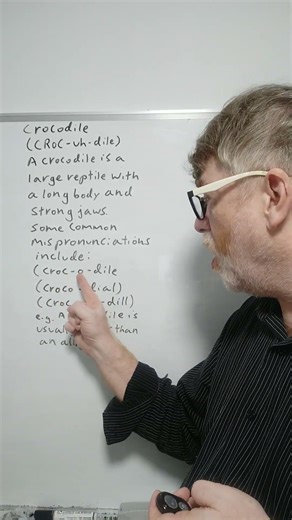 Crocodile
(CROC-uh-dile)
A crocodile is a
large reptile with
a long body and
strong jaws.
some common
mispronunciations
include:
(croc-o-dile
(croco dial)
(croc dill)
e.g. A ile is
usual than
an al